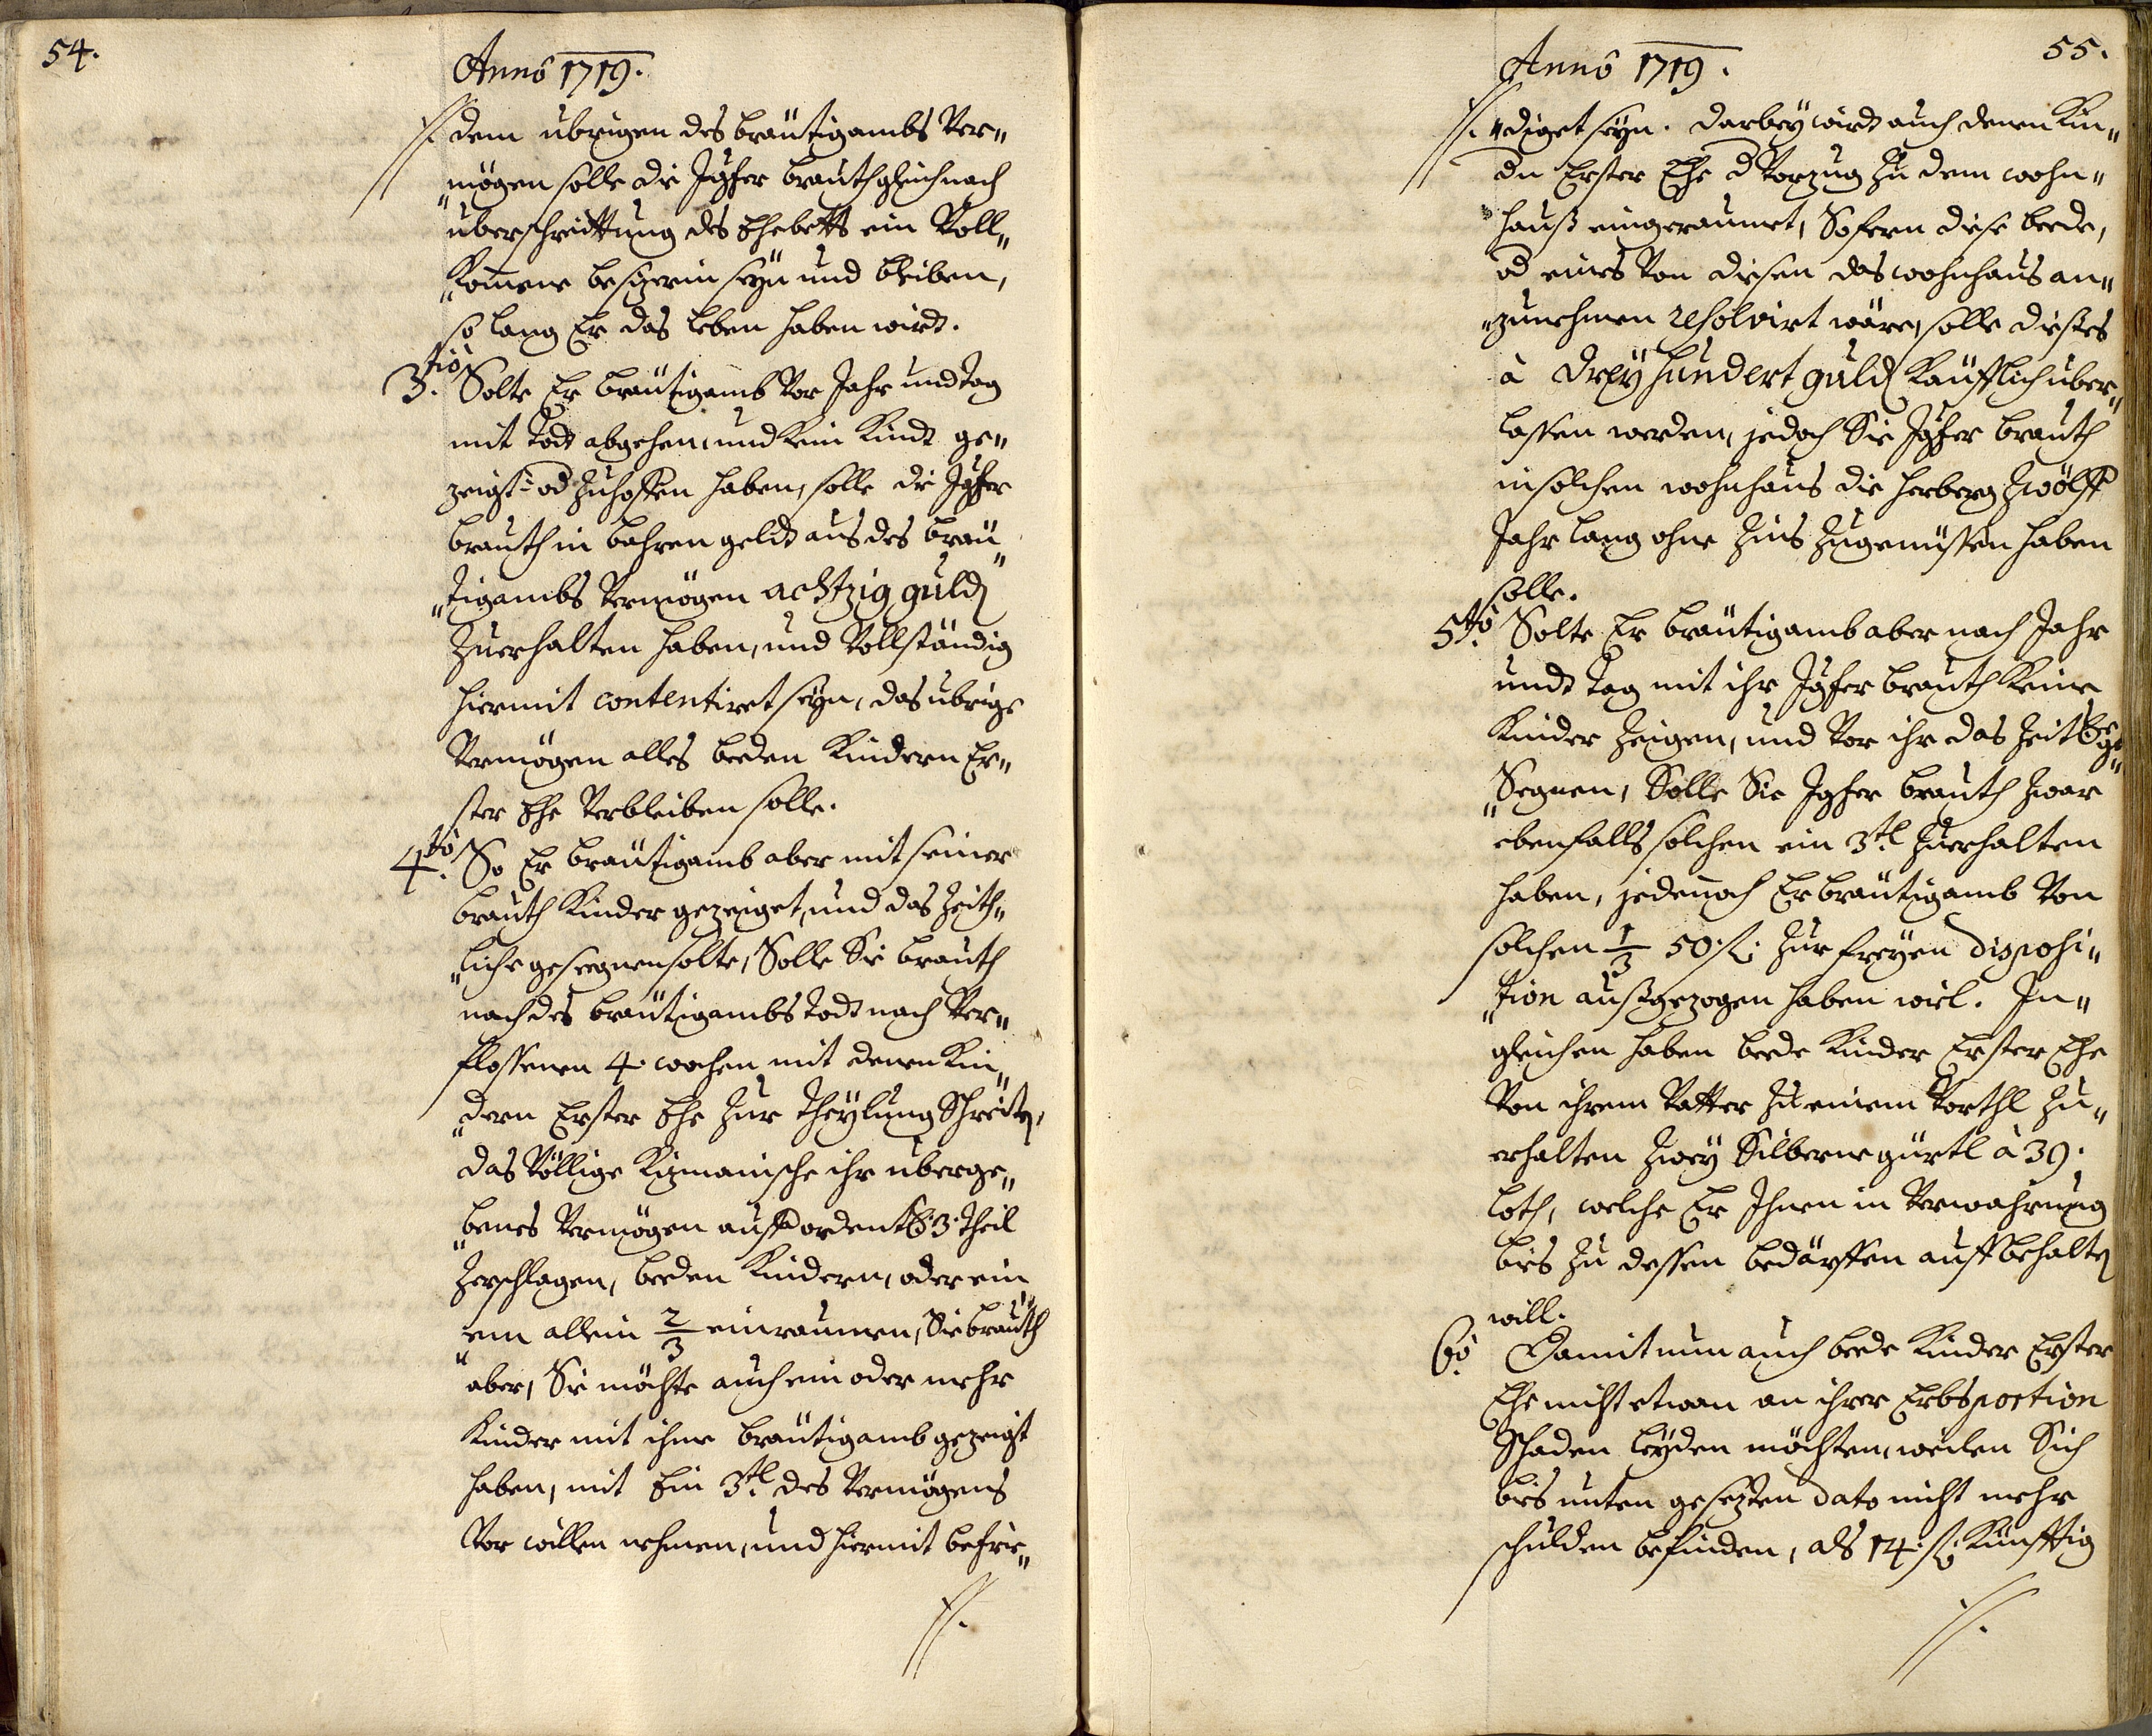 54.
Anno 1719.
//. dem übrigen des bräutigambs Ver„
„mögen solle die Jgfer brauth gleich nach
überschreittung des Ehebetts ein Voll„
„komene besizerin seyn und bleiben,
so lang Er das leben haben wirdt.
3.tiò Solte Er bräutigamb vor Jahr und tag
mit todt abgehen, und kein Kindt ge„
zeigt- od zuhoffen haben, solle die Jgfer
brauth in bahren geldt aus des bräu„
„tigambs Vermögen achtzig guld
zuerhalten haben, und Vollständig
hiermit contentiret seyn, das übrige
Vermögen alles beeden Kindern Er„
ster Ehe verbleiben solle.
4.tò So Er bräutigamb aber mit seiner
brauth Kinder gezeiget, und das Zeith„
„liche geseegnen solte, Solle Sie brauth
nach des bräutigambs todt nach Ver„
flossenen 4. wochen mit denen Kin„
„dern Erster Ehe zur theylung Schreit,
das Völlige ihr überge„
„benes Vermögen auff ordentl. 3. theil
zerschlagen, beeden Kindern, oder ein„
„em allein 2/3 einraumen, Sie brauth
aber, Sie möchte auch ein oder mehr
Kinder mit ihme bräutigamb gezeigt
haben, mit Ein 3.tl des Vermögens
Vor willen nehmen, und hiermit befrie„
//.
55.
Anno 1719.
//. „diget seyn. Darbey wirdt auch denen Kin„
dn Erster Ehe d Vorzug zu dem wohn„
hauß eingeraumet, Sofern diese beede,
od eines von diesen das wohnhaus an„
„zunehmen resolvirt wäre, solle dieses
à Dreyhundert guld Käufflich über„
lassen werden, jedoch Sie Jgfer brauth
in solchen wohnhaus die herberg Zwölff
Jahr lang ohne Zins zugenüssen haben
solle.
5.tò Solte Er bräutigamb aber nach Jahr
undt tag mit ihr Jgfer brauth keine
Kinder zeigen, und vor ihr das Zeitl. ge„
„Segnen, Solle Sie Jgfer brauth zwar
ebenfalls solchen ein 3.tl zuerhalten
haben, jedennoch Er bräutigamb von
solchen 1/3 50. fl. zur freyen disposi„
„tion außgezogen haben wiel. In„
gleichen haben beede Kinder Erster Ehe
Von ihrem Vatter zu einem Vorthl zu„
erhalten Zwey Silberne gürtl à 39.
loth, welche Er Ihnen in Verwahrung
bis zu dessen bedürffen auffbehalt
will.
6.ò Damit nun auch beede Kinder Erster
Ehe nicht etwan an ihrer Erbsportion
Schaden leyden möchten, weilen Sich
bis unten gesezten dato nicht mehr
schulden befinden, als 14. fl. Künfftig
//.